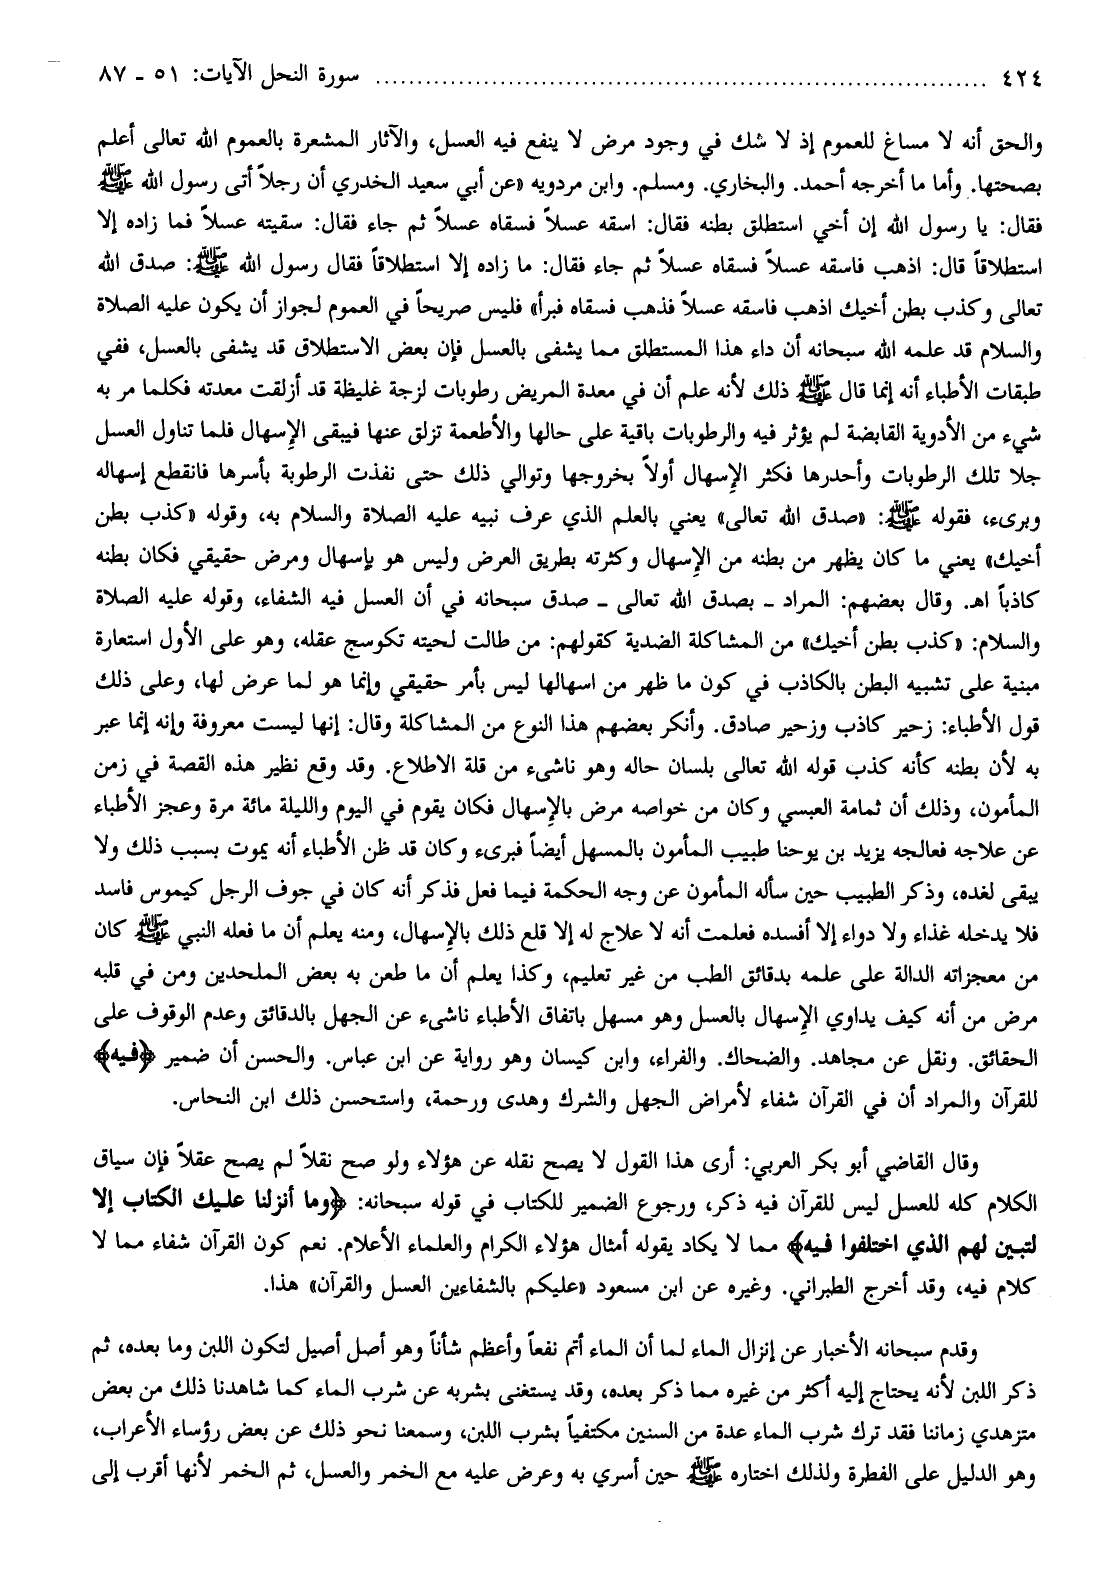 ٤٢٤ ........................................................................................ سورة النحل الآيات: ٥١ ـ ٨٧
والحق أنه لا مساغ للعموم إذ لا شك في وجود مرض لا ينفع فيه العسل، والآثار المشعرة بالعموم الله تعالى أعلم
بصحتها. وأما ما أخرجه أحمد. والبخاري. ومسلم. وابن مردويه «عن أبي سعيد الخدري أن رجلاً أتى رسول الله ﷺ
فقال: يا رسول الله إن أخي استطلق بطنه فقال: اسقه عسلاً فسقاه عسلاً ثم جاء فقال: سقيته عسلاً فما زاده إلا
استطلاقاً قال: اذهب فاسقه عسلاً فسقاه عسلاً ثم جاء فقال: ما زاده إلا استطلاقاً فقال رسول الله ﷺ: صدق الله
تعالى وكذب بطن أخيك اذهب فاسقه عسلاً فذهب فسقاه فبرأ» فليس صريحاً في العموم لجواز أن يكون عليه الصلاة
والسلام قد علمه الله سبحانه أن داء هذا المستطلق مما يشفى بالعسل فإن بعض الاستطلاق قد يشفى بالعسل، ففي
طبقات الأطباء أنه إنما قال ﷺ ذلك لأنه علم أن في معدة المريض رطوبات لزجة غليظة قد أزلقت معدته فكلما مر به
شيء من الأدوية القابضة لم يؤثر فيه والرطوبات باقية على حالها والأطعمة تزلق عنها فيبقى الإسهال فلما تناول العسل
جلا تلك الرطوبات وأحدرها فكثر الإسهال أولاً بخروجها وتوالي ذلك حتى نفذت الرطوبة بأسرها فانقطع إسهاله
وبرىء، فقوله ﷺ: «صدق الله تعالى» يعني بالعلم الذي عرف نبيه عليه الصلاة والسلام به، وقوله «كذب بطن
أخيك» يعني ما كان يظهر من بطنه من الإسهال وكثرته بطريق العرض وليس هو بإسهال ومرض حقيقي فكان بطنه
كاذباً اهـ. وقال بعضهم: المراد ـ بصدق الله تعالى ـ صدق سبحانه في أن العسل فيه الشفاء، وقوله عليه الصلاة
والسلام: «كذب بطن أخيك» من المشاكلة الضدية كقولهم: من طالت لحيته تكوسج عقله، وهو على الأول استعارة
مبنية على تشبيه البطن بالكاذب في كون ما ظهر من اسهالها ليس بأمر حقيقي وإنما هو لما عرض لها، وعلى ذلك
قول الأطباء: زحير كاذب وزحير صادق. وأنكر بعضهم هذا النوع من المشاكلة وقال: إنها ليست معروفة وإنه إنما عبر
به لأن بطنه كأنه كذب قوله الله تعالى بلسان حاله وهو ناشىء من قلة الاطلاع. وقد وقع نظير هذه القصة في زمن
المأمون، وذلك أن ثمامة العبسي وكان من خواصه مرض بالإسهال فكان يقوم في اليوم والليلة مائة مرة وعجز الأطباء
عن علاجه فعالجه يزيد بن يوحنا طبيب المأمون بالمسهل أيضاً فبرىء وكان قد ظن الأطباء أنه يموت بسبب ذلك ولا
يبقى لغده، وذكر الطبيب حين سأله المأمون عن وجه الحكمة فيما فعل فذكر أنه كان في جوف الرجل كيموس فاسد
فلا يدخله غذاء ولا دواء إلا أفسده فعلمت أنه لا علاج له إلا قلع ذلك بالإسهال، ومنه يعلم أن ما فعله النبي ﷺ كان
من معجزاته الدالة على علمه بدقائق الطب من غير تعليم، وكذا يعلم أن ما طعن به بعض الملحدين ومن في قلبه
مرض من أنه كيف يداوي الإسهال بالعسل وهو مسهل باتفاق الأطباء ناشىء عن الجهل بالدقائق وعدم الوقوف على
الحقائق. ونقل عن مجاهد. والضحاك. والفراء، وابن كيسان وهو رواية عن ابن عباس. والحسن أن ضمير ﴿فيه﴾
للقرآن والمراد أن في القرآن شفاء لأمراض الجهل والشرك وهدى ورحمة، واستحسن ذلك ابن النحاس.
وقال القاضي أبو بكر العربي: أرى هذا القول لا يصح نقله عن هؤلاء ولو صح نقلاً لم يصح عقلاً فإن سياق
الكلام كله للعسل ليس للقرآن فيه ذكر، ورجوع الضمير للكتاب في قوله سبحانه: ﴿وما أنزلنا عليك الكتاب إلا
لتبين لهم الذي اختلفوا فيه﴾ مما لا يكاد يقوله أمثال هؤلاء الكرام والعلماء الأعلام. نعم كون القرآن شفاء مما لا
كلام فيه، وقد أخرج الطبراني. وغيره عن ابن مسعود «عليكم بالشفاءين العسل والقرآن» هذا.
وقدم سبحانه الأخبار عن إنزال الماء لما أن الماء أتم نفعاً وأعظم شأناً وهو أصل أصيل لتكون اللبن وما بعده، ثم
ذكر اللبن لأنه يحتاج إليه أكثر من غيره مما ذكر بعده، وقد يستغنى بشربه عن شرب الماء كما شاهدنا ذلك من بعض
متزهدي زماننا فقد ترك شرب الماء عدة من السنين مكتفياً بشرب اللبن، وسمعنا نحو ذلك عن بعض رؤساء الأعراب،
وهو الدليل على الفطرة ولذلك اختاره ﷺ حين أسري به وعرض عليه مع الخمر والعسل، ثم الخمر لأنها أقرب إلى